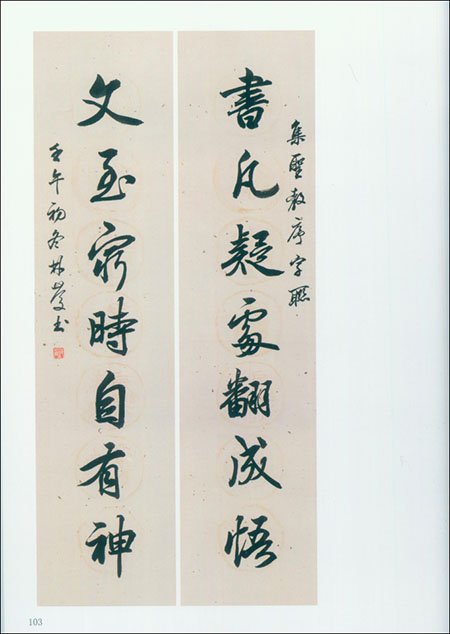 集聖教序字聯
書凡疑處翻成悟
文至窮時自有神
壬午初冬林书
103